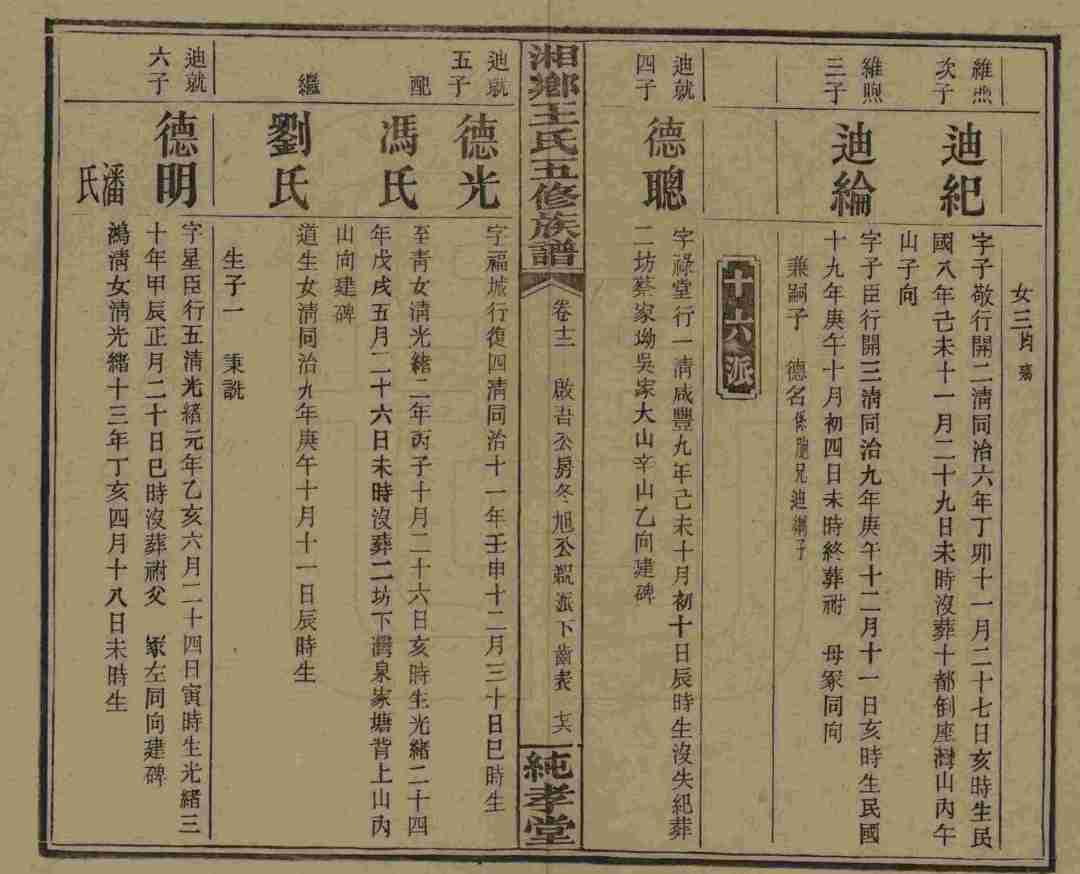 女三均殤
維煦次子
迪紀
字子敬行開二清同治六年丁卯十一月二十七日亥時生民
國八年己未十一月二十九日未時沒葬十都倒座灣山丙午
山子向
維煦三子
迪綸
字子臣行開三清同治九年庚午十二月十一日亥時生民國
十九年庚午十月初四日未時終葬祔 母冢同向
兼嗣子 德名係胞兄迪綱子
十六派
迪就四子
德聰
字祿堂行一清咸豐九年己未十月初十日辰時生沒失紀葬
二坊蔡家坳吳家大山辛山乙向建碑
湘鄉王氏五修族譜
卷十三 啟吾公房冬旭公派下齒表
純孝堂
迪就五子
德光
字福城行復四清同治十一年壬申十二月三十日巳時生
配
馮氏
至青女清光緒二年丙子十月二十六日亥時生光緒二十四
年戊戌五月二十六日未時沒葬二坊下灣泉家塘背上山丙
山向建碑
繼
劉氏
道生女清同治九年庚午十月十一日辰時生
生子一 秉詵
迪就六子
德明
字星臣行五清光緒元年乙亥六月二十四日寅時生光緒三
十年甲辰正月二十日巳時沒葬祔父 冢左同向建碑
潘氏
鴻清女清光緒十三年丁亥四月十八日未時生